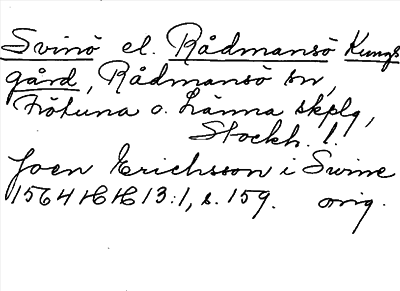 Svinö el. Rådmansö Kungs
gård, Rådmansö sn,
Frötuna o. Länna skplg,
Stockh. l.
Joen Erichsson i Swine
1564 HH 13:1, s. 159. orig.